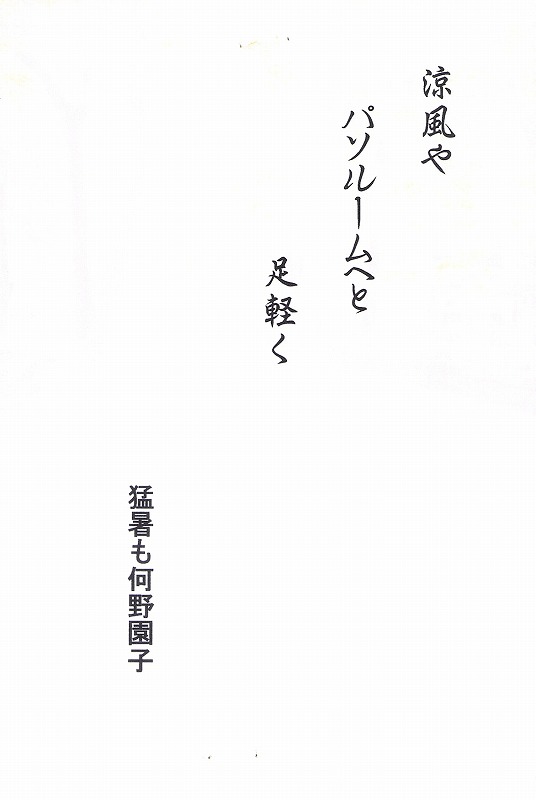 涼風や
パソルームへと
足軽く
猛暑も何野園子